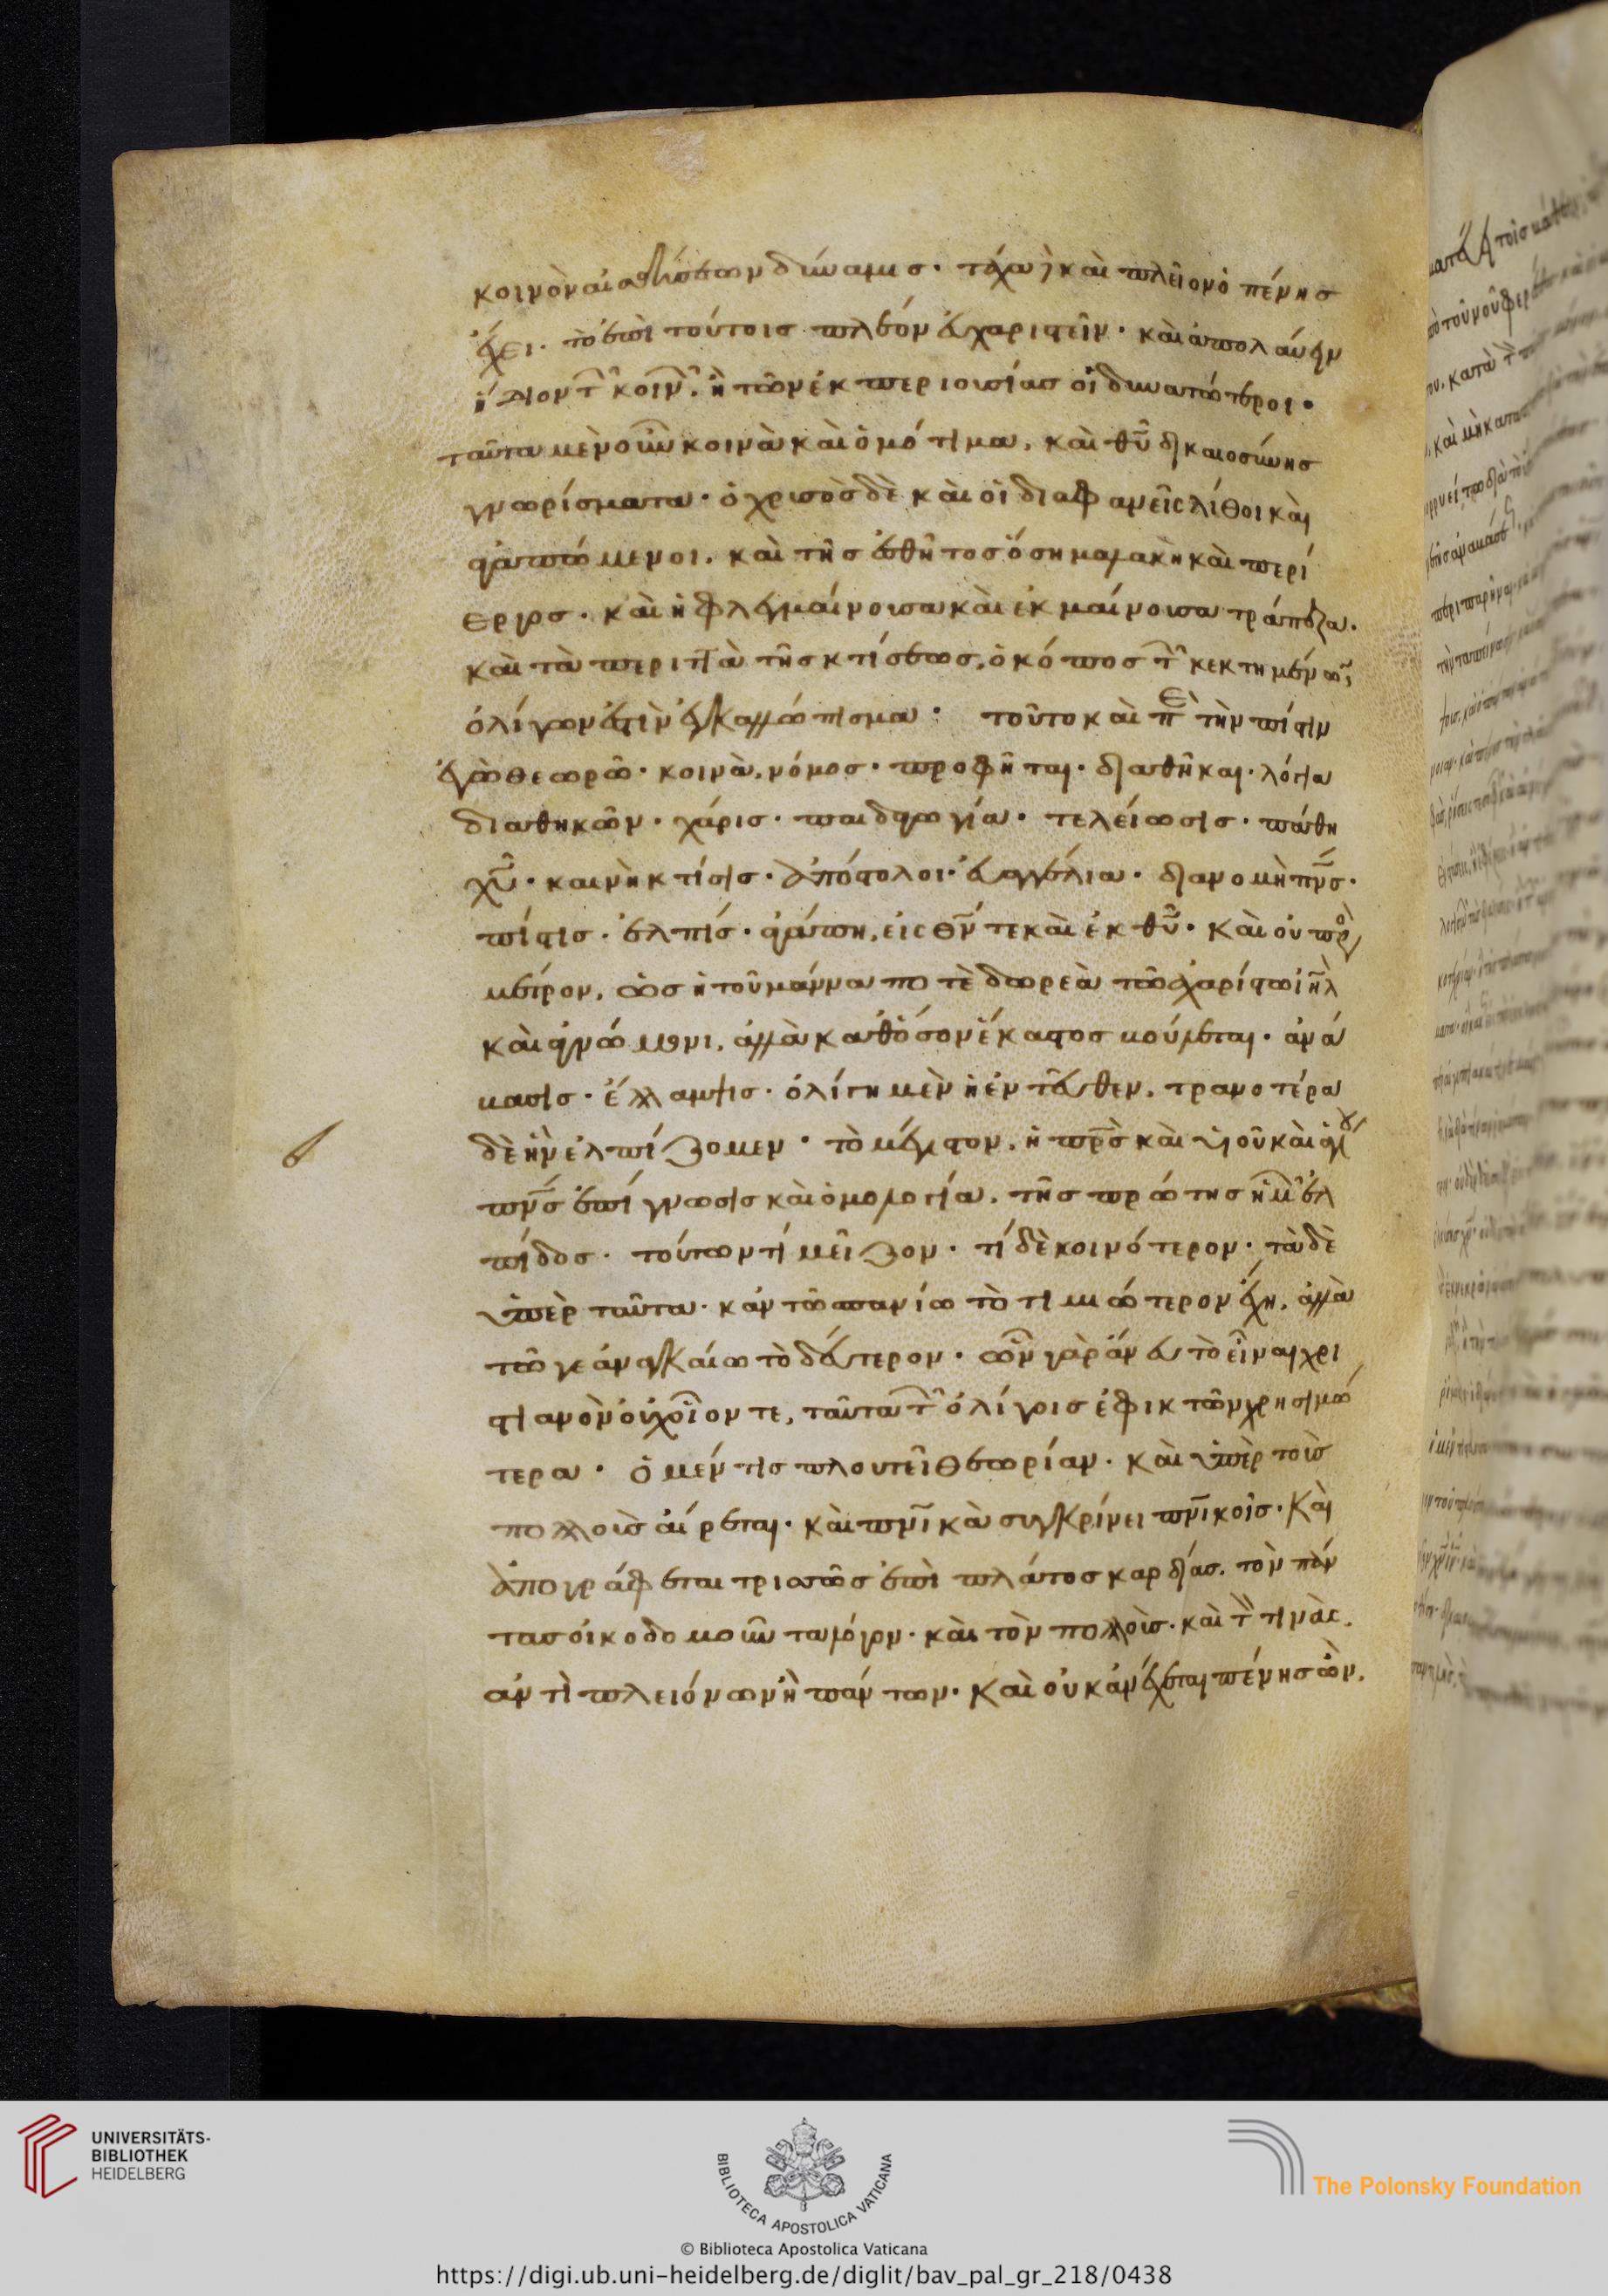 κοινὸν αἰσθήσεων δύναμις· τάχα δὲ καὶ πλεῖον ὁ πένης
ἔχει· τὸ ἐπὶ τούτοις πλέον εὐχαριστεῖν· καὶ ἀπολαύειν
ἥδιον τ̑ κοιν̑· ἢ τῶν ἐκ περιουσίας οἱ δυνατώτεροι·
ταῦτα μὲν οὖν κοινὰ καὶ ὁμότιμα, καὶ θῦ δικαιοσύνης
γνωρίσματα· ὁ χρυσὸς δὲ καὶ οἱ διαφανεῖς λίθοι καὶ
ἀγαπώμενοι, καὶ τῆς ἐσθῆτος ὅση μαλακὴ καὶ περί
εργος· καὶ ἡ φλεγμαίνουσα καὶ ἐκμαίνουσα τράπεζα·
καὶ τὰ περιττὰ τῆς κτήσεως, ὁ κόπος τ̑ κεκτημένων,
ὀλίγων ἐστὶν ἐγκαλλώπισμα· τοῦτο καὶ πε τὴν πίστιν
ἐγὼ θεωρῶ· κοινὰ, νόμος· προφῆται· διαθῆκαι· λόγια
διαθηκῶν· χάρις· παιδαγωγία· τελείωσις· πάθη
χῦ· καινὴ κτίσις· ἀπόστολοι· εὐαγγέλια· διανομὴ πνς·
πίστις· ἐλπίς· ἀγάπη, εἰς θν τε καὶ ἐκ θῦ· καὶ οὐ πρὸς
μέτρον, ὡς ἡ τοῦ μάννα ποτὲ δωρεὰ τῶ ἀχαρίστω ιηλ
καὶ ἀγνώμονι, ἀλλὰ καθόσον ἕκαστος βούλεται· ἀνά
βασις· ἔλλαμψις· ὀλίγη μὲν ἡ ἐντεῦθεν, τρανοτέρα
δὲ ἣν ἐλπίζομεν· τὸ μέγιστον, ἡ πρς καὶ υἱοῦ καὶ ἁγίου
πνς ἐπίγνωσις καὶ ὁμολογία, τῆς πρώτης ἡμ̑ ἐλ
πίδος· τούτων τί μεῖζον· τί δὲ κοινότερον· τὰ δὲ
ὑπὲρ ταῦτα· κἂν τῶ σπανίω τὸ τιμιώτερον ἔχη, ἀλλὰ
τῶ γε ἀναγκαίω τὸ δεύτερον· ὧν γὰρ ἄνευ τὸ εἶναι χρι
στιανὸν οὐχ οἷόν τε, ταῦτα τ̑ ὀλίγοις ἐφικτῶν χρησιμώ
τερα· ὁ μέν τις πλουτεῖ θεωρίαν· καὶ ὑπὲρ τοὺς
πολλοὺς αἴρεται· καὶ πνικὰ συγκρίνει πνικοῖς· καὶ
ἀπογράφεται τρισσῶς ἐπὶ πλάτος καρδίας, τὸν πάν
τας οἰκοδομοῦντα λόγον· καὶ τὸν πολλοὺς· καὶ τ̀ τινὰς,
ἀντὶ πλειόνων ἢ πάντων· καὶ οὐκ ἀνέχεται πένης ὢν,
UNIVERSITÄTS-
BIBLIOTHEK
HEIDELBERG
BIBLIOTECA APOSTOLICA VATICANA
The Polonsky Foundation
© Biblioteca Apostolica Vaticana
https://digi.ub.uni-heidelberg.de/diglit/bav_pal_gr_218/0438